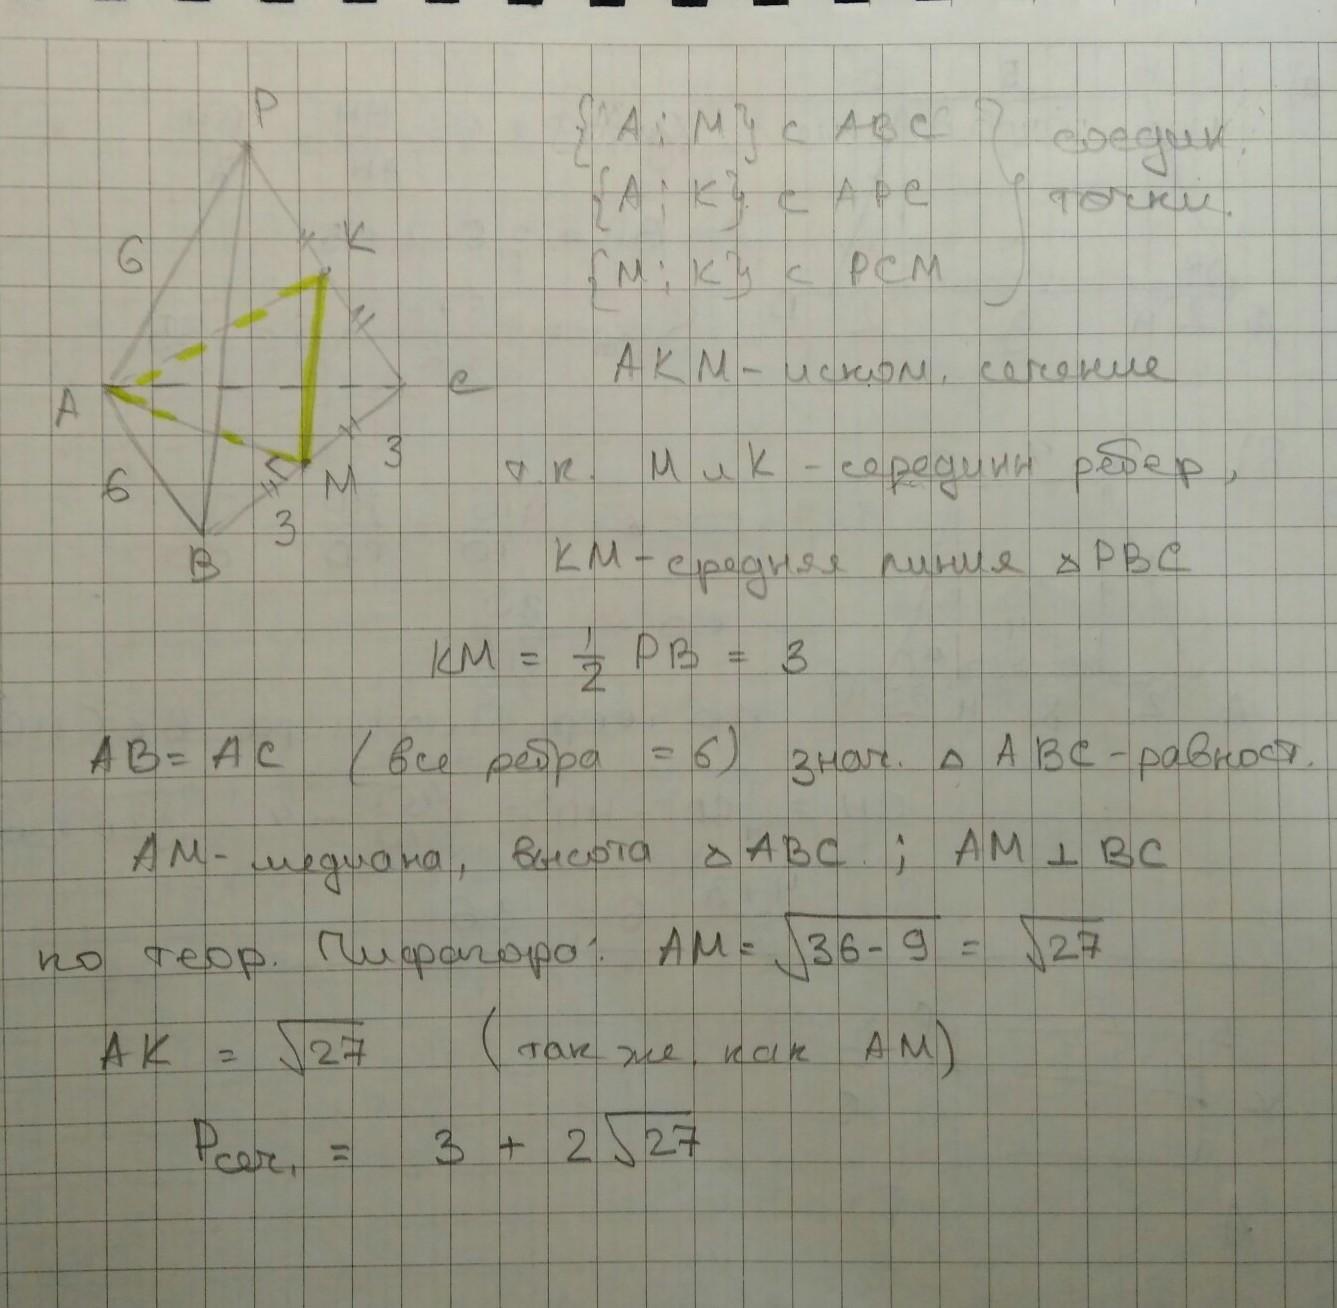 P
K
6
A
C
6
M
3
3
B
{A; M} ⊂ ABC
{A; K} ⊂ APC
{M; K} ⊂ PCM
соедин.
точки.
AKM - иском. сечение
т.к. M и K - середины рёбер,
KM - средняя линия △PBC
KM = 1/2 PB = 3
AB = AC (все рёбра = 6) знач. △ ABC - равност.
AM - медиана, высота △ABC ; AM ⊥ BC
по теор. Пифагора: AM = √36-9 = √27
AK = √27 (так же, как AM)
Pсеч. = 3 + 2√27